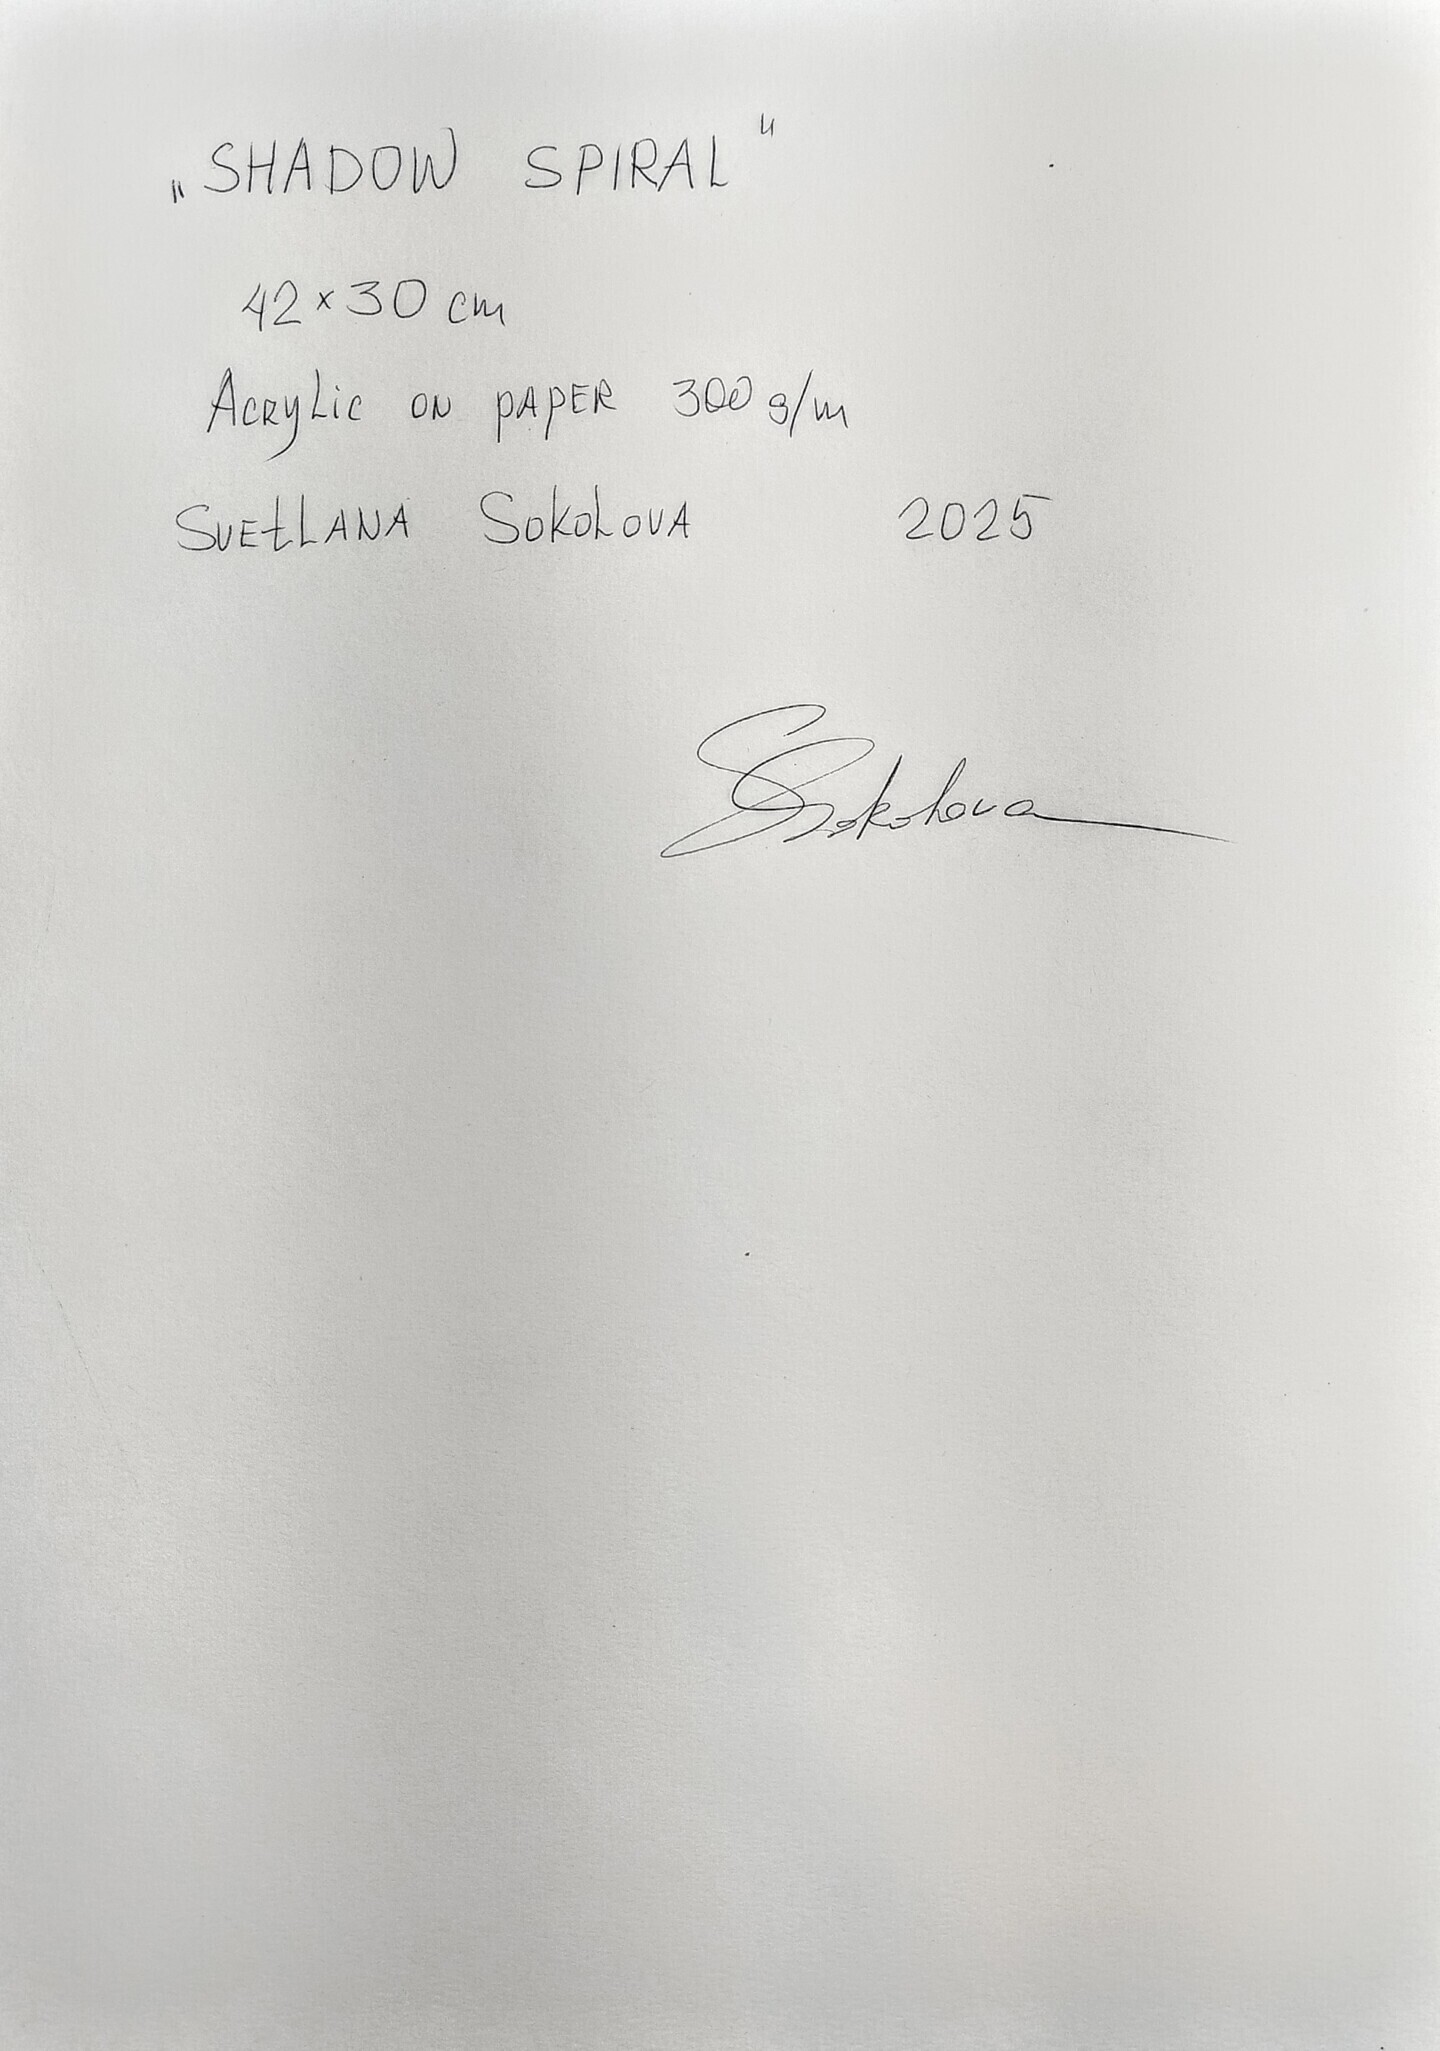 „SHADOW SPIRAL"
42×30 cm
Acrylic on paper 300 g/m
Svetlana Sokolova 2025
SSokolova